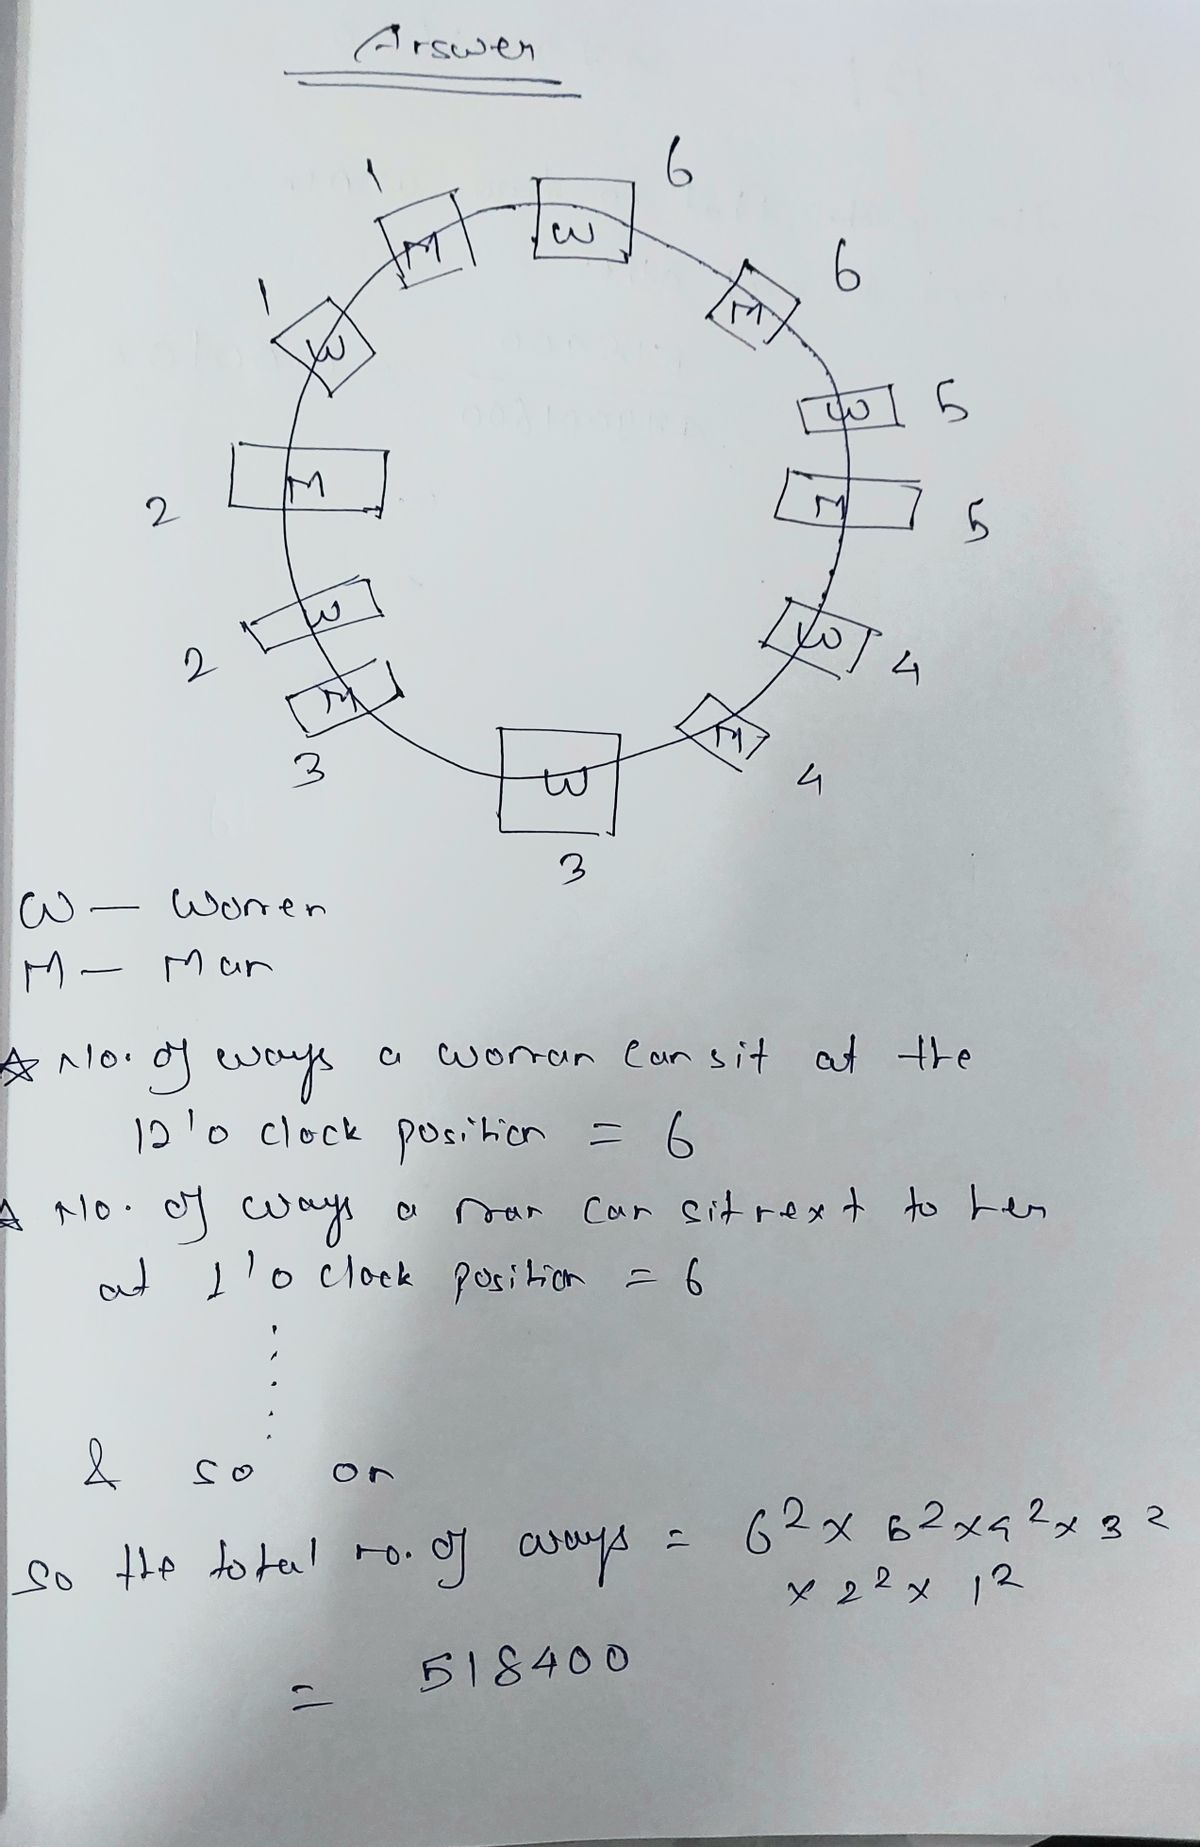 Answer
1
6
M
W
6
1
M
W
W
5
2
M
M
5
W
W
2
4
M
M
3
W
4
3
W — Women
M — Man
☆ No. of ways a woman can sit at the
12'o clock position = 6
☆ No. of ways a man can sit next to her
at 1'o clock position = 6
& so on
So the total no. of ways = 6² x 5² x 4² x 3²
x 2² x 1²
= 518400